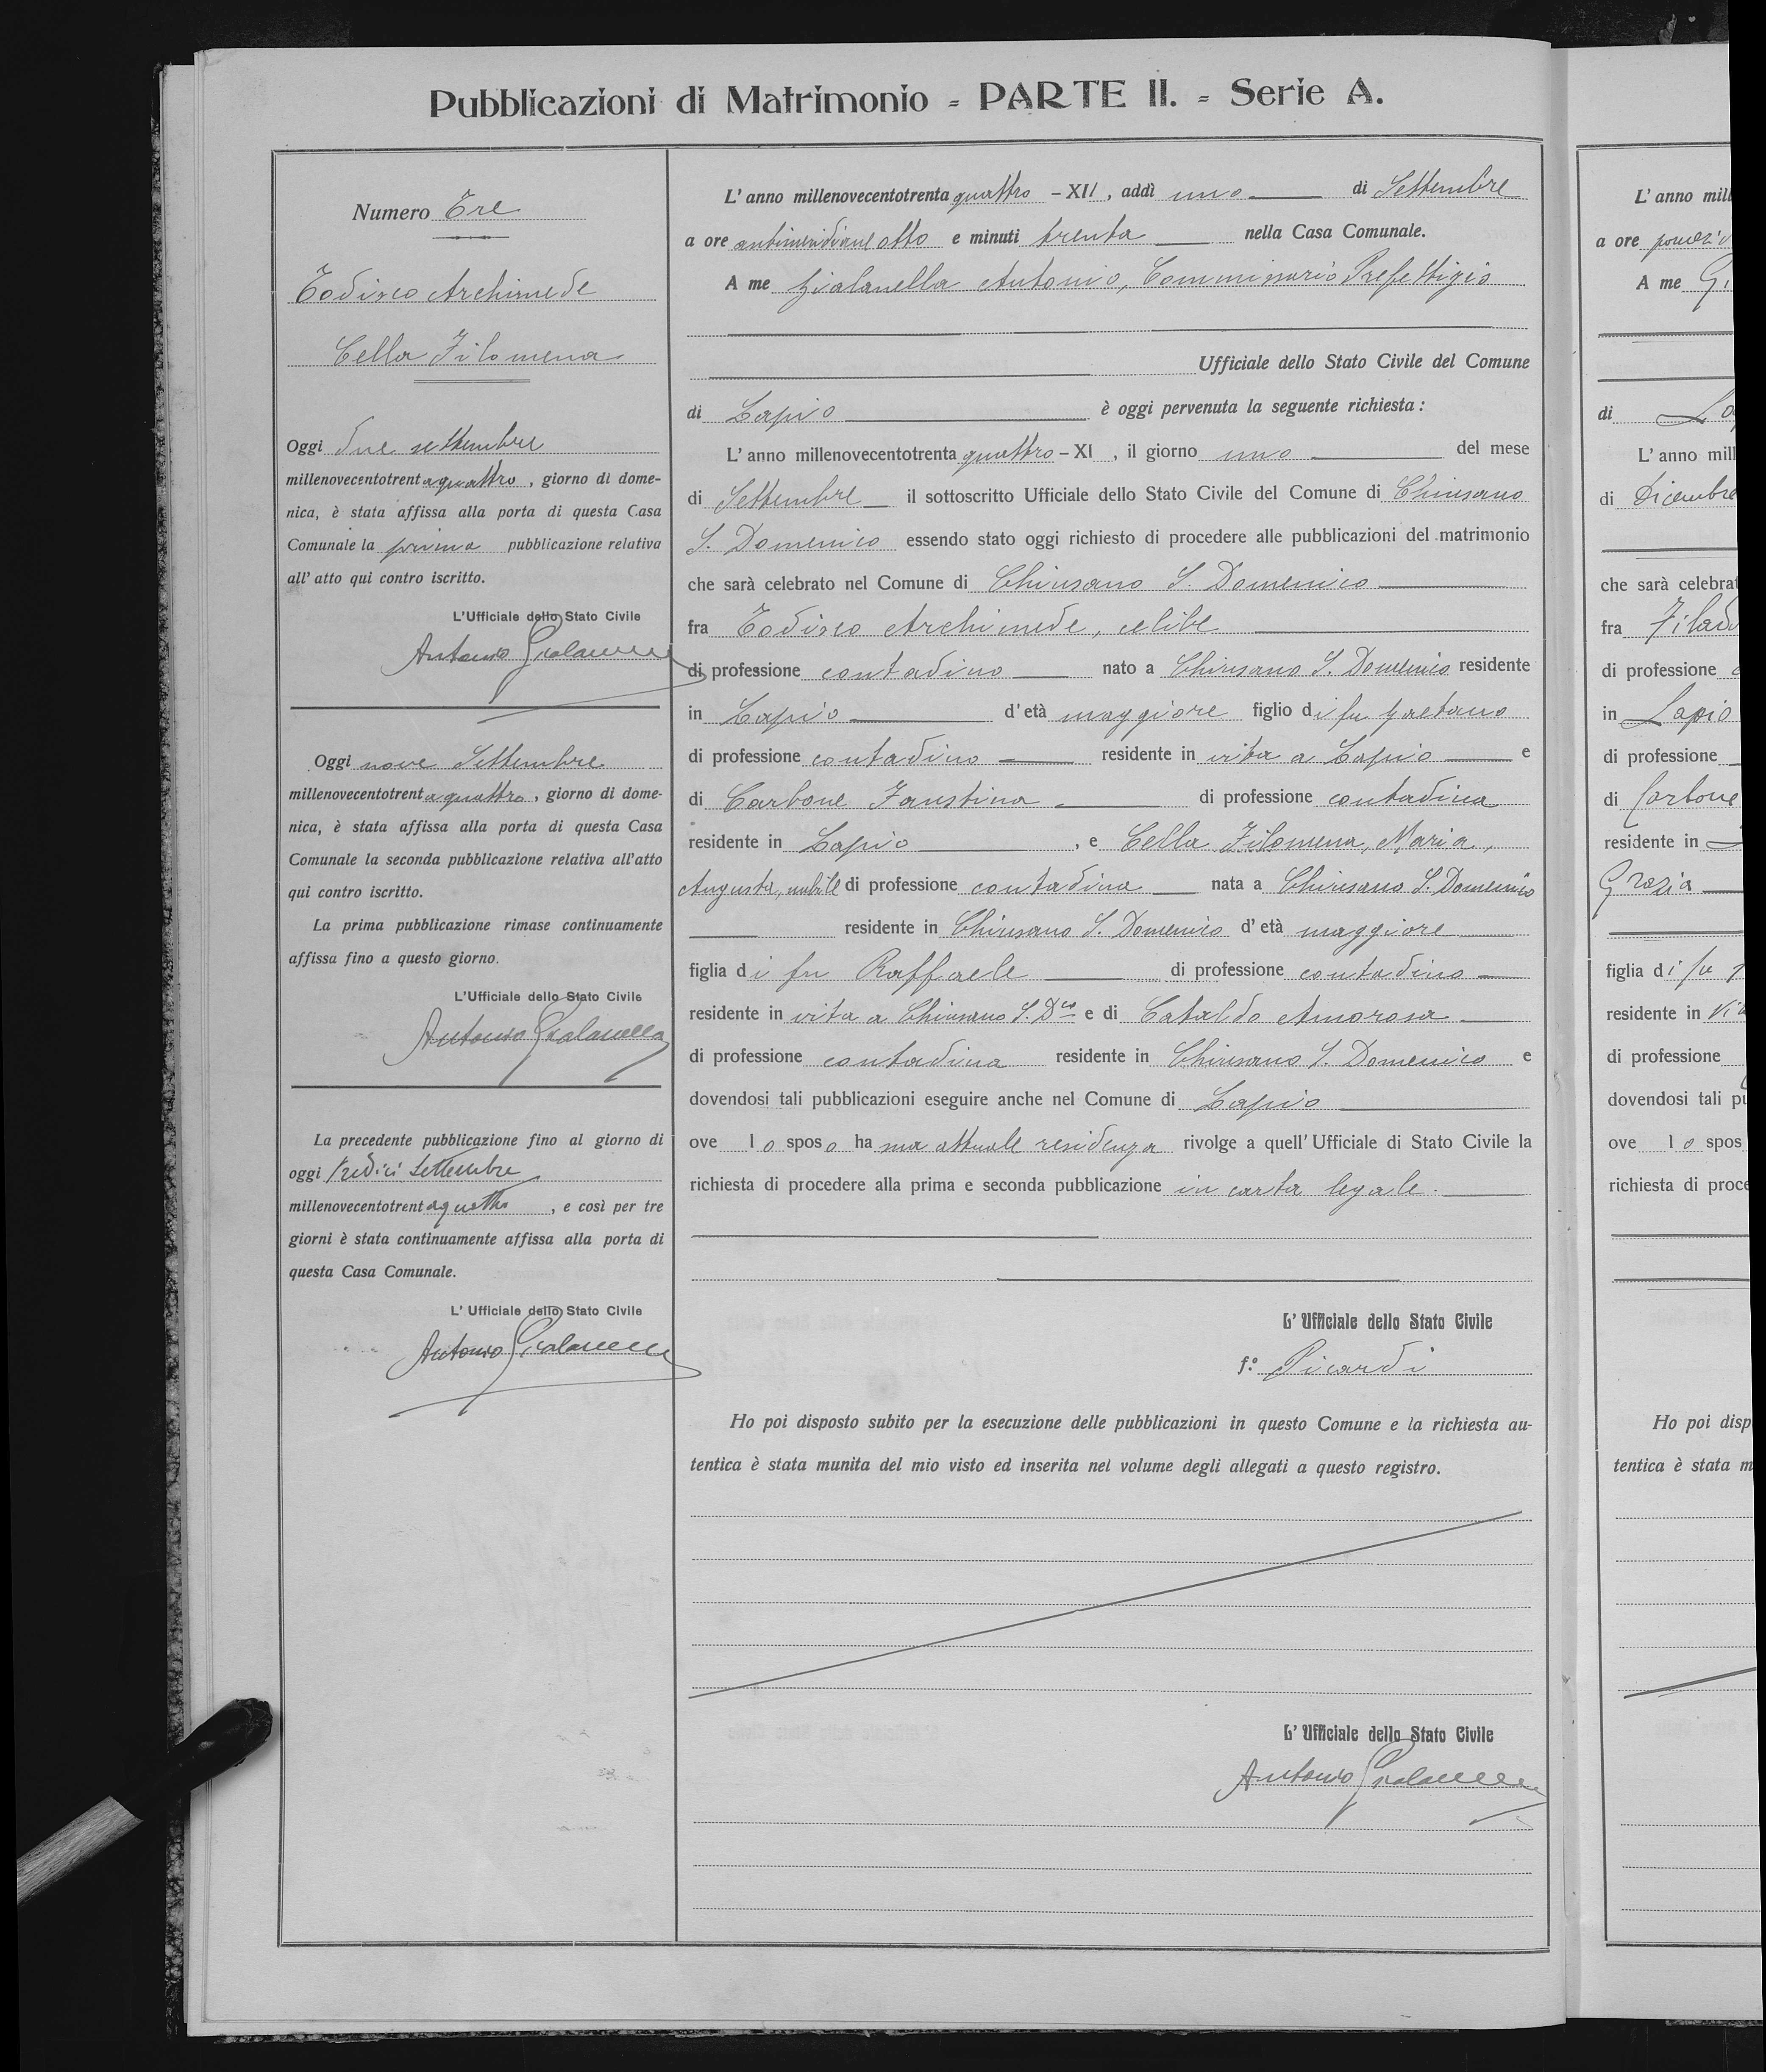 Pubblicazioni di Matrimonio - PARTE II. - Serie A.
Numero Tre
Todisco Archimede
Cella Filomena
Oggi due settembre
millenovecentotrentaquattro, giorno di dome-
nica, è stata affissa alla porta di questa Casa
Comunale la prima pubblicazione relativa
all'atto qui contro iscritto.
L'Ufficiale dello Stato Civile
Antonio Gialanella
Oggi nove Settembre
millenovecentotrentaquattro, giorno di dome-
nica, è stata affissa alla porta di questa Casa
Comunale la seconda pubblicazione relativa all'atto
qui contro iscritto.
La prima pubblicazione rimase continuamente
affissa fino a questo giorno.
L'Ufficiale dello Stato Civile
Antonio Gialanella
La precedente pubblicazione fino al giorno di
oggi tredici settembre
millenovecentotrentaquattro, e così per tre
giorni è stata continuamente affissa alla porta di
questa Casa Comunale.
L'Ufficiale dello Stato Civile
Antonio Gialanella
L'anno millenovecentotrentaquattro - XII, addì uno di Settembre
a ore antimeridiane otto e minuti trenta nella Casa Comunale.
A me Gialanella Antonio, Commissario Prefettizio
Ufficiale dello Stato Civile del Comune
di Lapio è oggi pervenuta la seguente richiesta:
L'anno millenovecentotrentaquattro - XI, il giorno uno del mese
di Settembre il sottoscritto Ufficiale dello Stato Civile del Comune di Chiusano
S. Domenico essendo stato oggi richiesto di procedere alle pubblicazioni del matrimonio
che sarà celebrato nel Comune di Chiusano S. Domenico
fra Todisco Archimede, celibe
di professione contadino nato a Chiusano S. Domenico residente
in Lapio d'età maggiore figlio di fu Gaetano
di professione contadino residente in vita a Lapio e
di Carbone Faustina di professione contadina
residente in Lapio, e Cella Filomena, Maria,
Augusta, nubile di professione contadina nata a Chiusano S. Domenico
residente in Chiusano S. Domenico d'età maggiore
figlia di fu Raffaele di professione contadino
residente in vita a Chiusano S. D.co e di Cataldo Amorosa
di professione contadina residente in Chiusano S. Domenico e
dovendosi tali pubblicazioni eseguire anche nel Comune di Lapio
ove lo sposo ha sua attuale residenza rivolge a quell'Ufficiale di Stato Civile la
richiesta di procedere alla prima e seconda pubblicazione in carta legale.
L'Ufficiale dello Stato Civile
f.º Picardi
Ho poi disposto subito per la esecuzione delle pubblicazioni in questo Comune e la richiesta au-
tentica è stata munita del mio visto ed inserita nel volume degli allegati a questo registro.
L'Ufficiale dello Stato Civile
Antonio Gialanella
L'anno mill
a ore
A me
di
L'anno mill
di Dicembre
che sarà celebrat
fra
di professione
in Lapio
di professione
di Carbone
residente in
Grazia
figlia di fu
residente in
di professione
dovendosi tali pu
ove lo spos
richiesta di proce
Ho poi disp
tentica è stata m